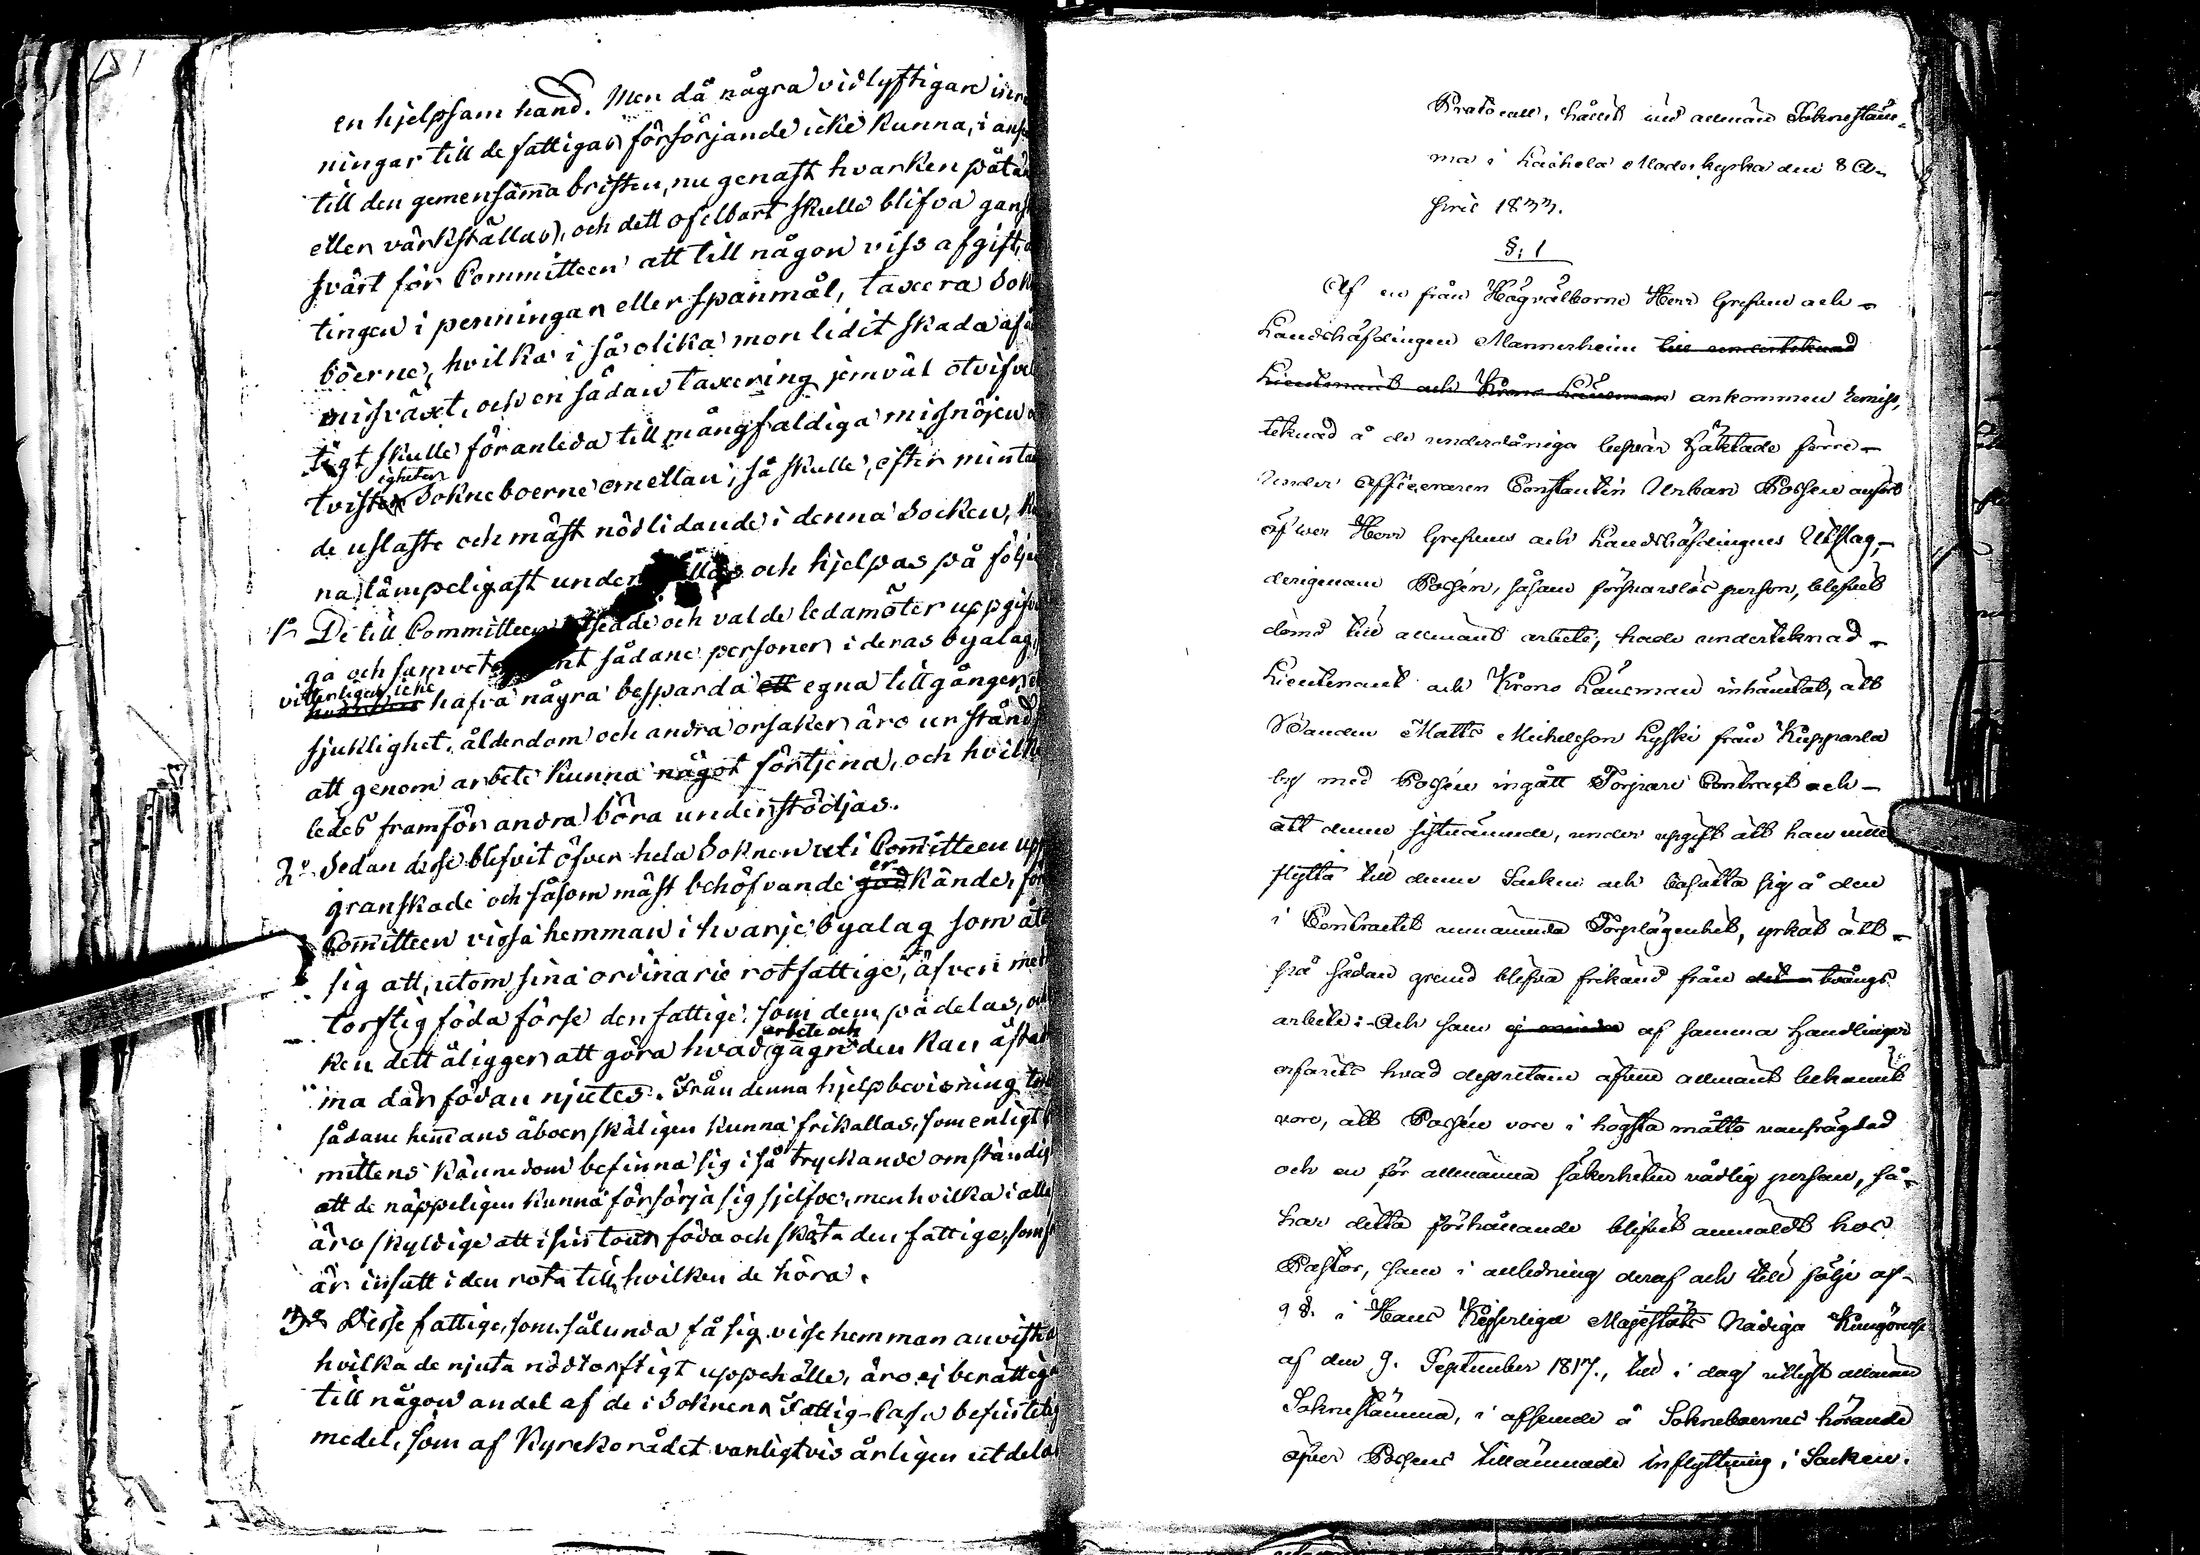 en hjelpsam hand. Men då några vidlyftigare inr
ningar till de fattigas försörjande icke kunna, i ans
till den gemensamma bristen, nu genast hvarken påtän
eller värkställas, och dett ofelbart skulle blifva gans
svårt för Committeen att till någon viss afgift,
tingen i penningar eller spanmål, taxera Sok
boerne, hvilka i så olika mon lidit skada af
misväxt, och en sådan taxering jemväl otvifvel
tigt skulle föranleda till mångfaldiga misnöjen
tvistigheter Sokneboerne emellan, så skulle, efter
de uslaste och mäst nödlidande i denna Socken,
na lämpeligast under och hjelpas på följ
1o De till Committeen och valde ledamöter uppgifva
ga och samvets sådane personer i deras byalag,
vitterligen icke hafva några besparda ett egna tillgånger,
sjuklighet, ålderdom och andra orsaker äro ur stånd
att genom arbete kunna något förtjena, och hvilka
ledes framför andra böra understödjas.
2o Sedan desse blifvit öfver hela Soknen uti Committeen upp
granskade och såsom mäst behöfvande erkände, för
Committeen vissa hemman i hvarje byalag som åt
sig att, utom sina ordinarie rotfattige, äfven med
torftig föda förse den fattige, som dem pådelas, och
ken dett åligger att göra hvad arbete och gagn den kan åstad
ma där födan njutes. Från denna hjelpbevisning
sådane hemmans åboer skäligen kunna frikallas, som enligt
mittens kännedom befinna sig i så tryckande omständig
att de näppeligen kunna försörja sig sjelfve, men hvilka i alla
äro skyldige att i sin tour föda och sköta den fattige, som
är insatt i den rota till hvilken de höra.
3o Desse fattige, som sålunda få sig visse hemman anviste
hvilka de njuta nödtorftigt uppehälle, äro ej berättiga
till någon andel af de i Soknens Fattig-Cassa befintelig
medel, som af Kyrckorådet vanligtvis årligen utdela
Protocoll, hållit vid allmän Soknestäm-
ma i Laihela Moderkyrka den 8 A-
pril 1833.
§. 1
Af en från Högvälborne Herr Grefven och
Landshöfdingen Mannerheim till undertecknad
Lieutenant och Krono Länsman ankommen remiss,
teknad å de underdåniga besvär häktade förre
Under Officeraren Constantin Urban Possén anfört
öfver Herr Grefvens och Landshöfdingens Utslag,
derigenom Possén, såsom försvarslös person, blifvit
dömd till allmänt arbete, hade underteknad
Lieutenant och Krono Länsman inhämtat, att
Bonden Matts Michelsson Lyski från Kupparla
by med Possén ingått Torpare Contract och
att denne sistnämnde, under upgift att han ville
flytta till denne Socken och bosätta sig å den
i Contractet omnämnda Torplägenhet, yrkat att
på sådan grund blifva frikänd från det tvångs
arbete: Och som ej mindre af samma Handlingar
erfarits hvad dessutom äfven allmänt bekannt
vore, att Possén vore i högsta måtto vanfrägdad
och en för allmänna säkerheten vådlig person, så
har detta förhållande blifvit anmäldt hos
Pastor, som i anledning deraf och till följe af
9 §. i Hans Kejserliga Majestäts Nådiga Kungörelse
af den 9. September 1817., till i dag utlyst allmän
Soknestämma, i afseende å Sokneboernes hörande
öfver Posséns tillämnade inflyttning i Socken.